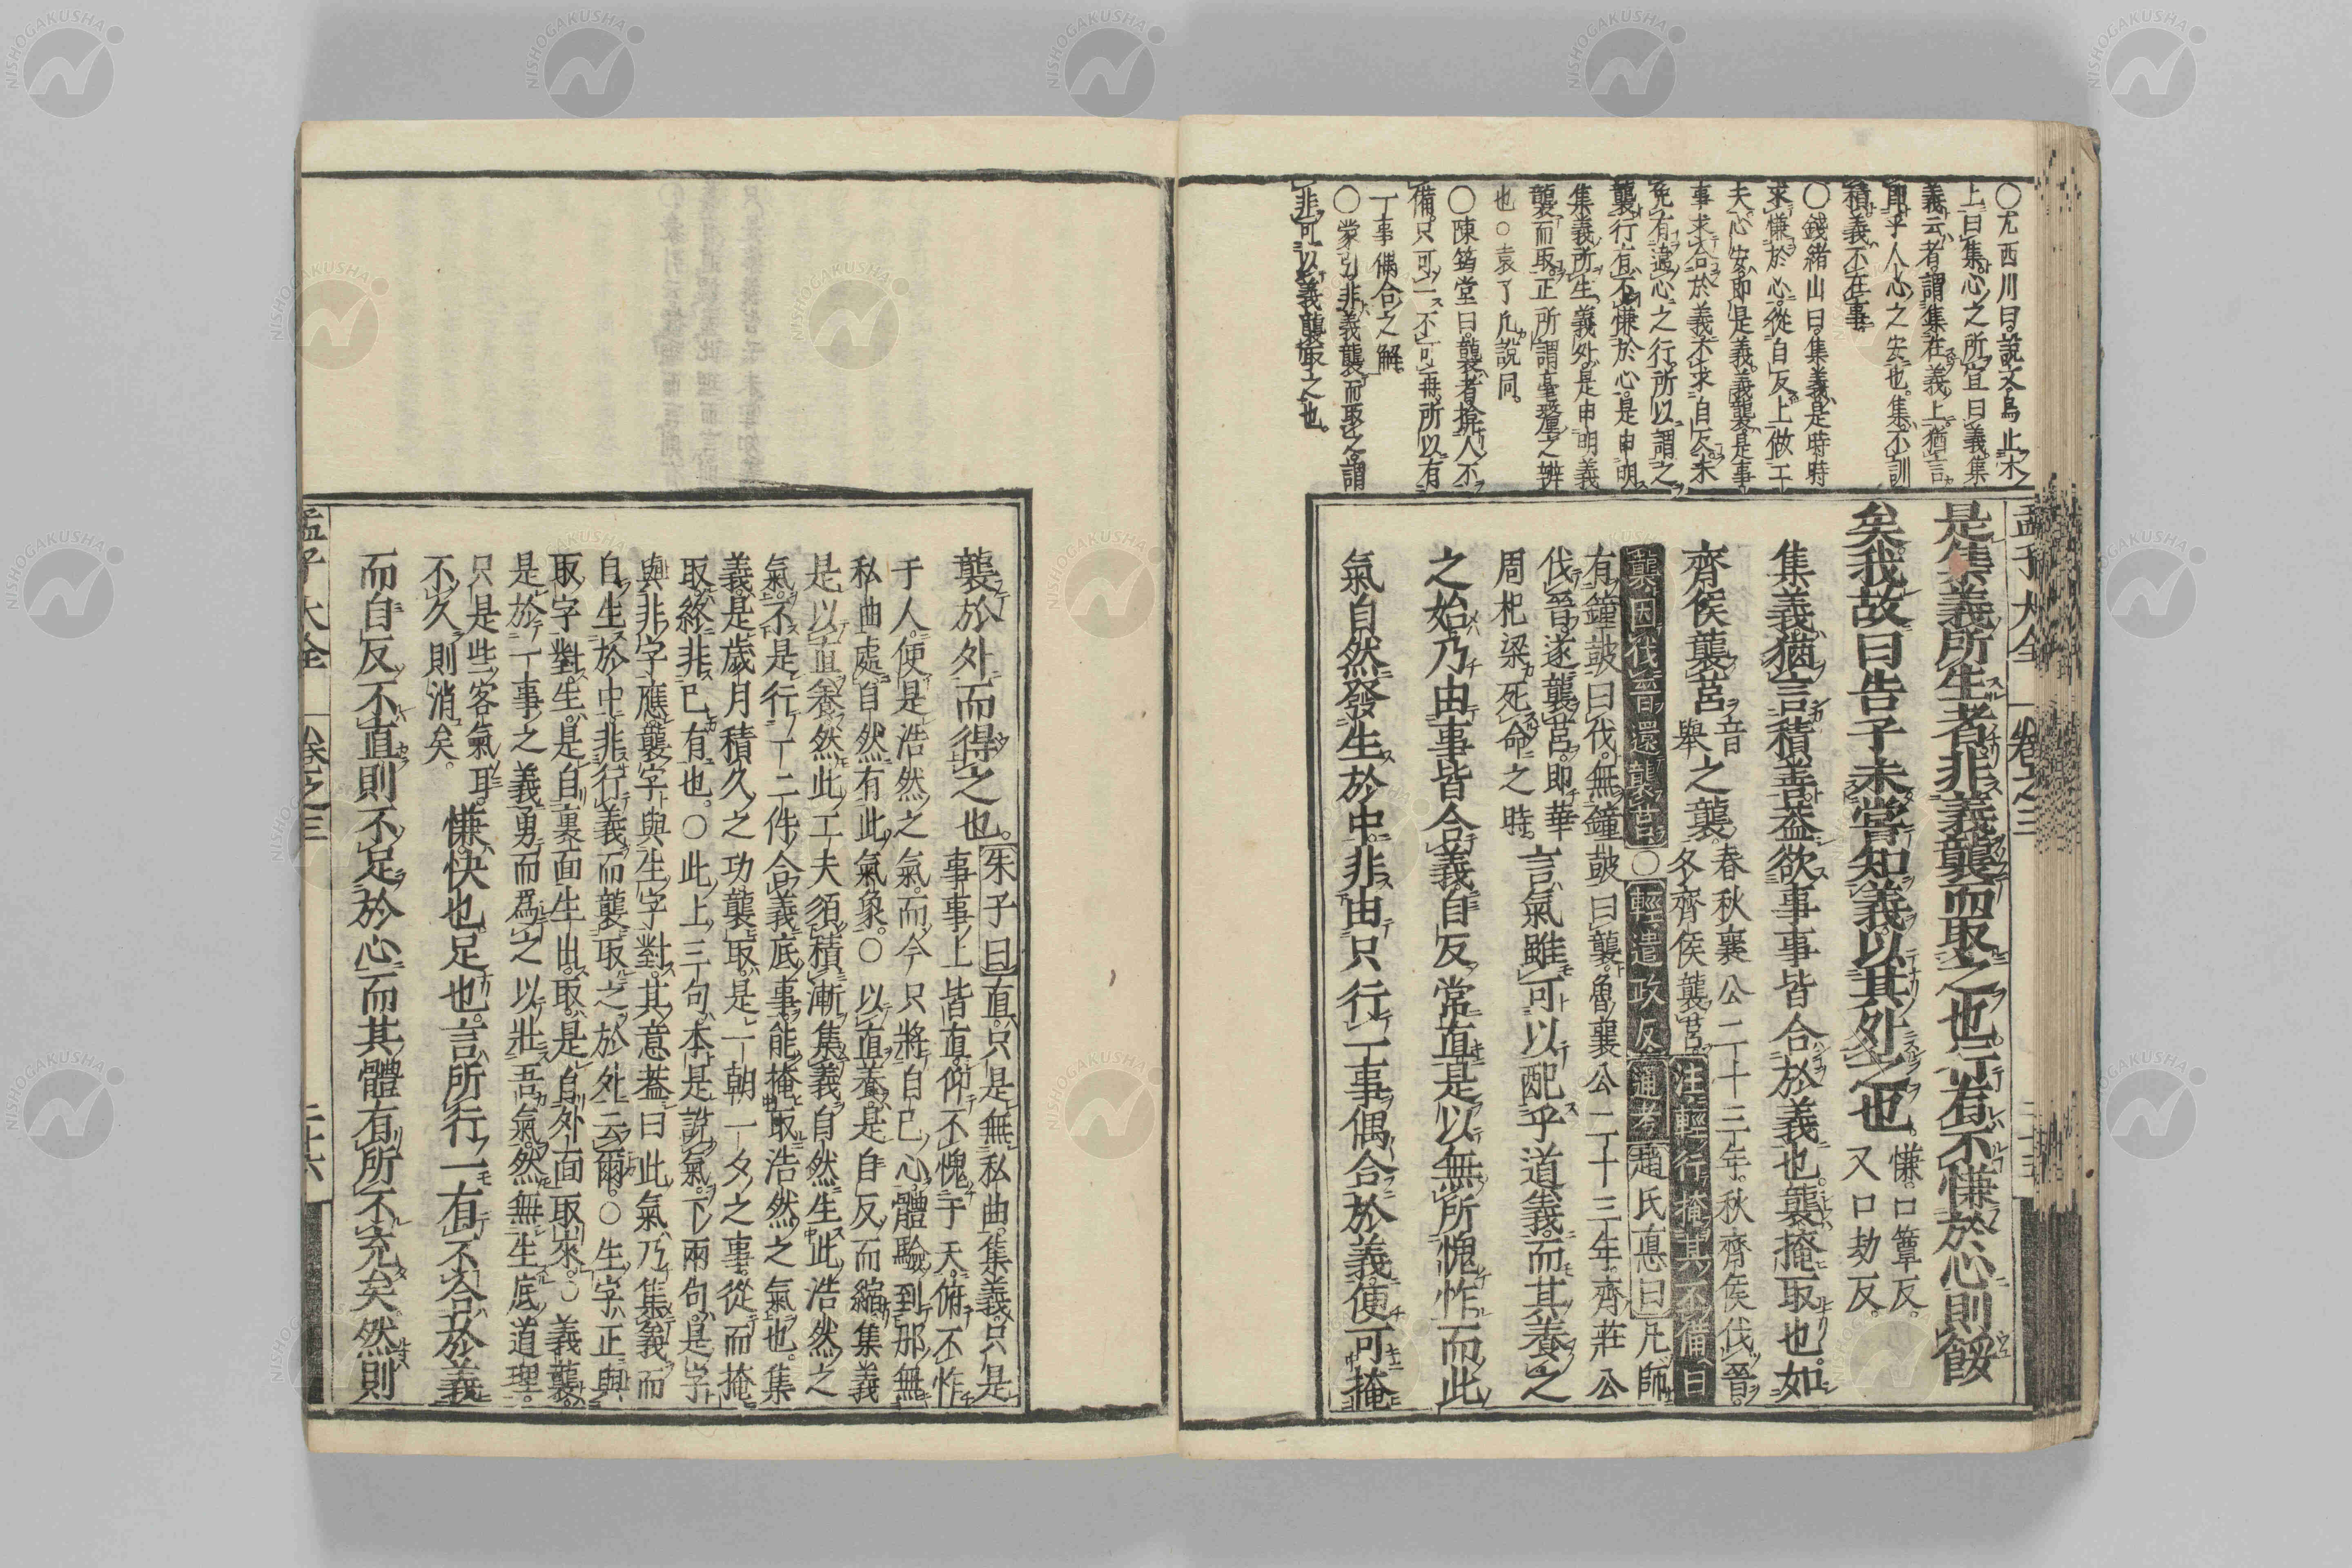 ○尤西川曰。說文鳥止木
上曰集。心之所宜曰義。集
義云者。謂集在義上。猶言
卽乎人心之安也。集不訓
積。義不在事。
○錢緒山曰。集義是時時
求慊於心。從自反上做工
夫。心安卽是義。義襲是事
事求合於義。不求自反。未
免有違心之行。所以謂之
襲。行有不慊於心。是申明
集義所生。義外。是申明義
襲而取。正所謂毫釐之辨
也○袁了凡說同。
○陳筠堂曰。襲者。掩人不
備。只可一不可再。所以有
一事偶合之解。
○蒙引。非義襲而取之。謂
非可以義襲取之也。
孟子大全 卷之三
是集義所生者。非義襲而取之也。行有不慊於心。則餒
矣。我故曰告子未嘗知義。以其外之也。慊。口簟反。
又口劫反。
集義。猶言積善。蓋欲事事皆合於義也。襲。掩取也。如
齊侯襲莒 音
擧 之襲。 春秋襄公二十三年。秋。齊侯伐晉。
冬。齊侯襲莒。 注輕行掩其不備曰
襲。因伐晉還襲莒 ○ 輕遣政反 通考 趙氏悳曰 凡師
有鐘皷曰伐。無鐘皷曰襲。魯襄公二十三年。齊莊公
伐晉。遂襲莒。卽華
周杞梁死命之時。 言氣雖可以配乎道義。而其養之
之始。乃由事皆合義。自反常直。是以無所愧怍。而此
氣自然發生於中。非由只行一事偶合於義。便可掩
襲於外而得之也。 朱子曰 直。只是無私曲。集義。只是
事事上皆直。仰不愧于天。俯不怍
于人。便是浩然之氣。而今只將自己心。體驗到那無
私曲處。自然有此氣象。○以直養。是自反而縮。集義
是以直養。然此工夫。須積漸集義。自然生此浩然之
氣。不是行一二件合義底事。能掩取浩然之氣也。集
義。是歲月積久之功。襲取。是一朝一夕之事。從而掩
取。終非己有也。○此上三句。本是說氣。下兩句。是字
與非字應。襲字與生字對。其意蓋曰。此氣乃集義而
自生於中。非行義而襲取之於外云爾。○生字。正與
取字對。生。是自裏面生出。取。是自外面取來。○義襲。
是於一事之義勇而爲之。以壯吾氣。然無生底道理。
只是些客氣耳。
不久則消矣。 慊。快也。足也。言所行一有不合於義。
而自反不直。則不足於心。而其體有所不充矣。然則
孟子大全 卷之三 二十六